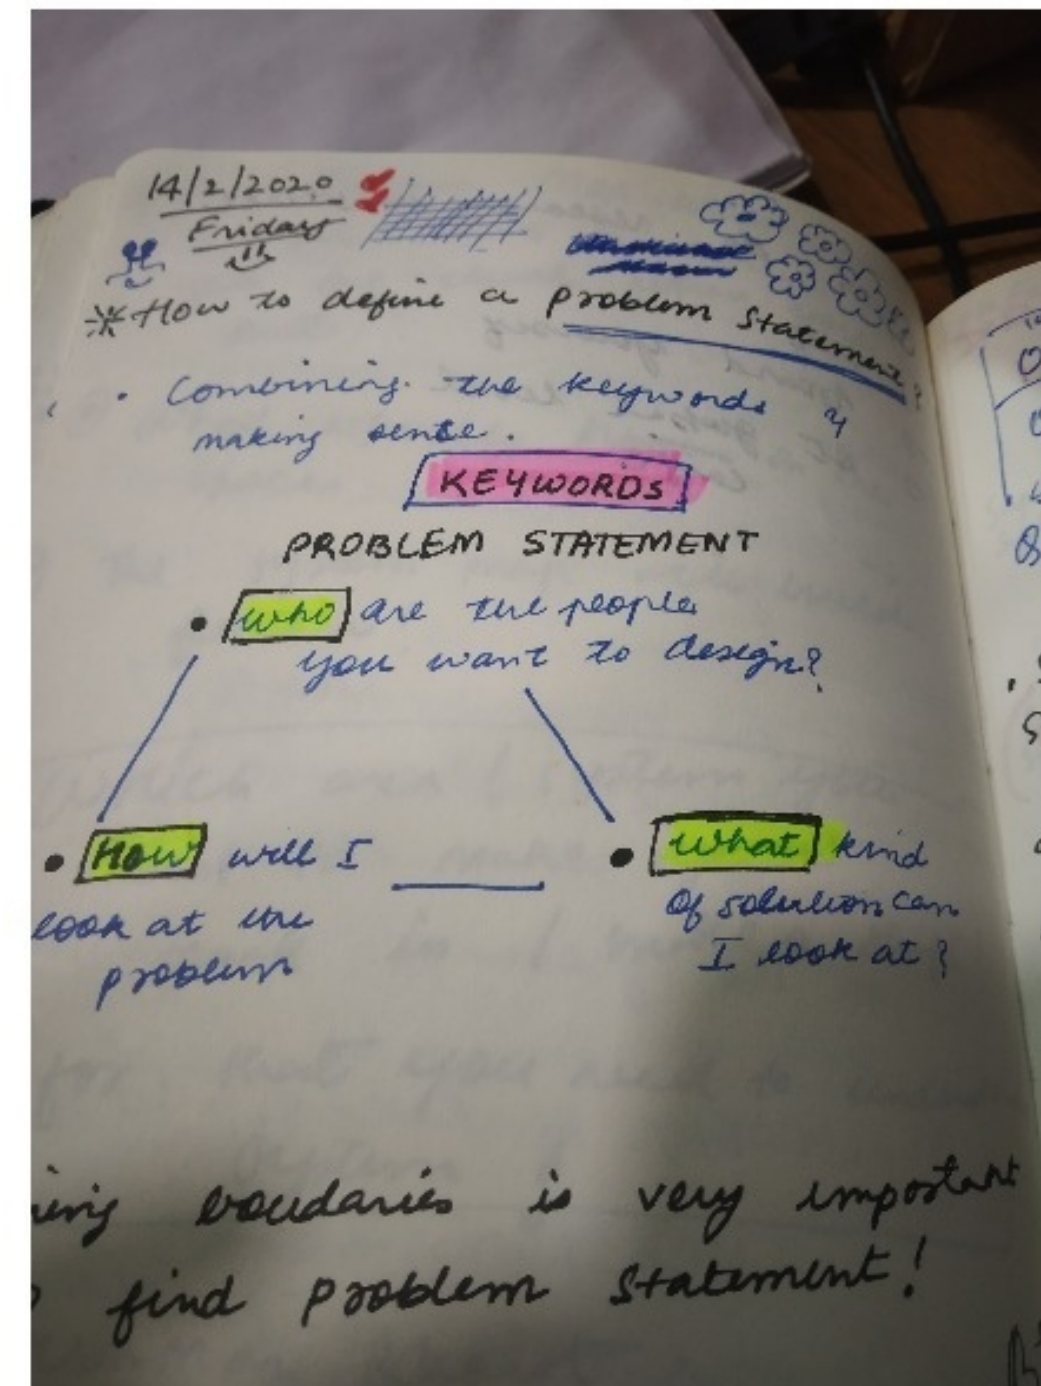 14/2/2020
Friday
How to define a problem statement
• Combining the keywords &
making sense.
KEYWORDS
PROBLEM STATEMENT
• Who are the people
you want to design?
• How will I
look at the
problem
• What kind
of solution can
I look at?
boudaries is very important
find problem statement!